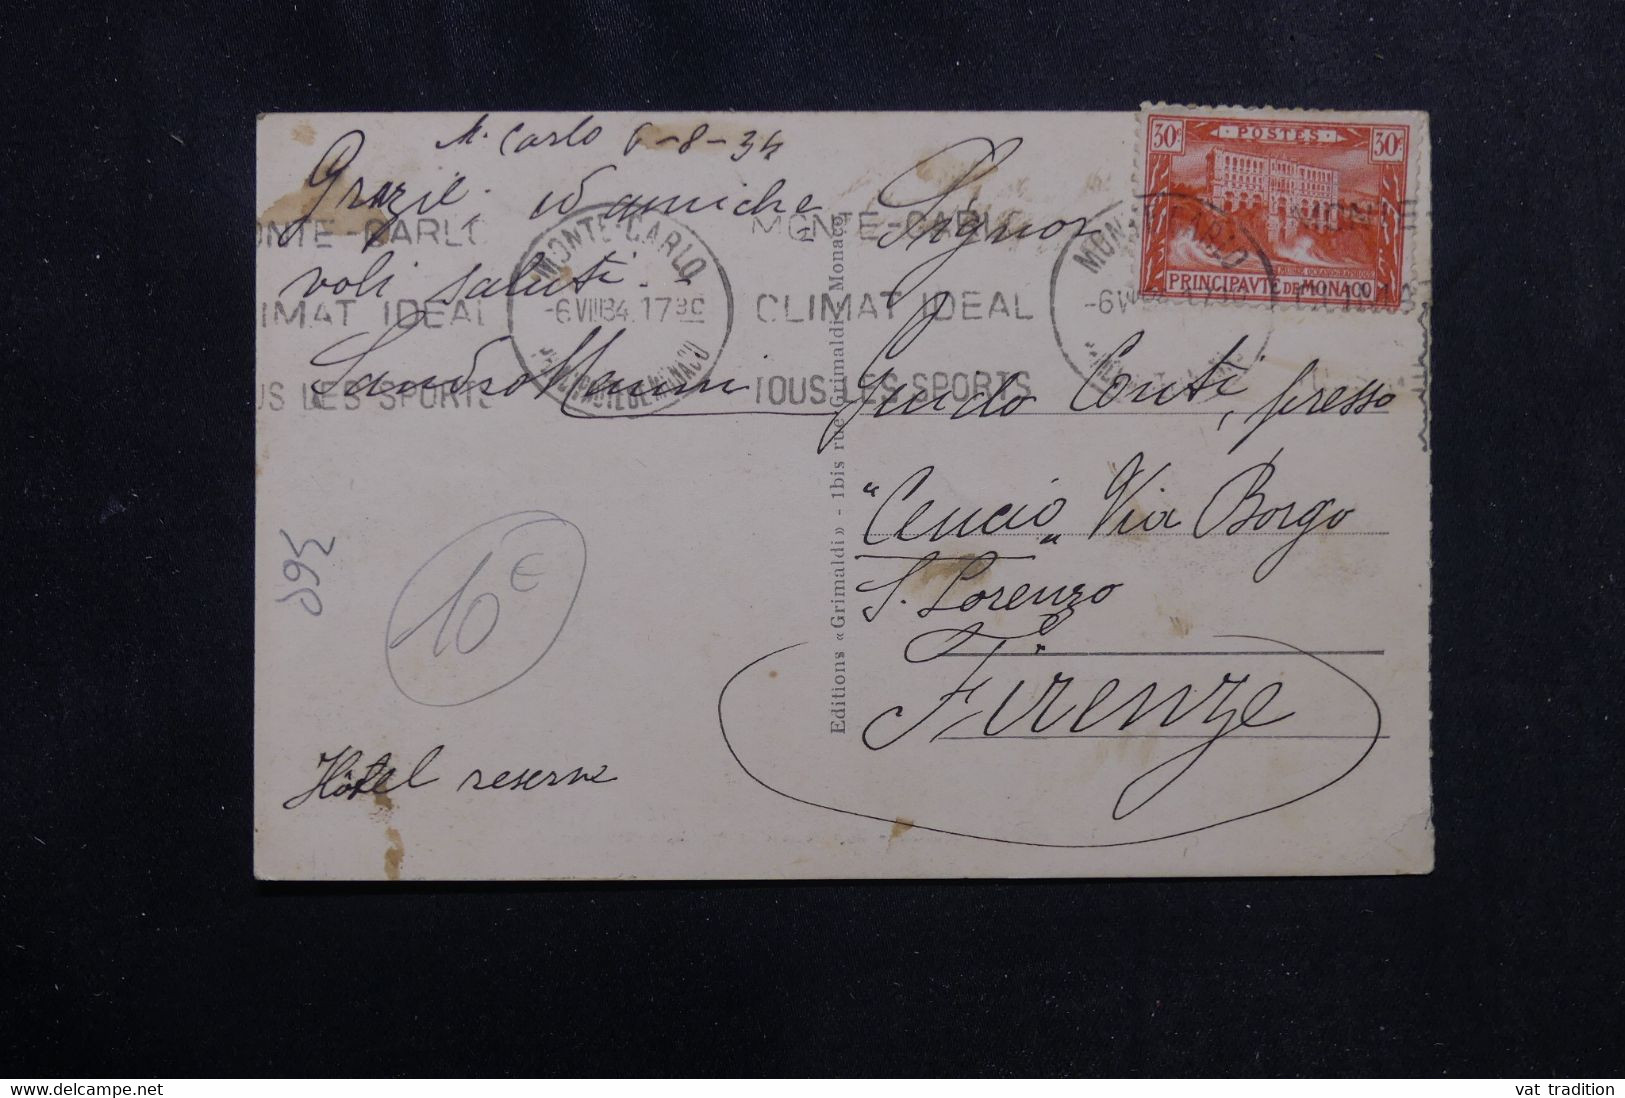 M. Carlo 6-8-34
Grazie. ed amiche-
voli saluti.
Sandro
Hôtel reserve
10 €
Signor
Guido Conti, presso
"Cencio" Via Borgo
S. Lorenzo
Firenze
Editions «Grimaldi» - 1bis rue Grimaldi - Monaco
MONTE-CARLO
-6 VIII 34. 17 30
PRINCIPAUTE DE MONACO
ONTE-CARLO
LIMAT IDEAL
US LES SPORTS
MONTE-CARLO
CLIMAT IDEAL
TOUS LES SPORTS
30c POSTES 30c
MUSEE OCEANOGRAPHIQUE
PRINCIPAVTE DE MONACO
vat tradition
www.delcampe.net